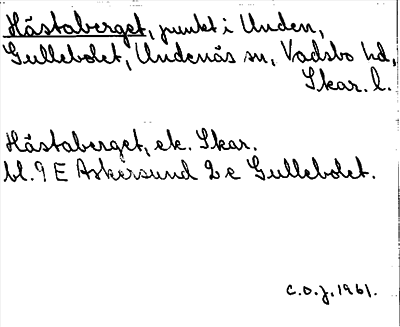 Hästaberget, punkt i Unden,
Gullebolet, Undenäs sn, Vadsbo hd,
Skar. l.
Hästaberget, ek. Skar.
bl. 9 E Askersund 2 c Gullebolet.
C.O.J. 1961.